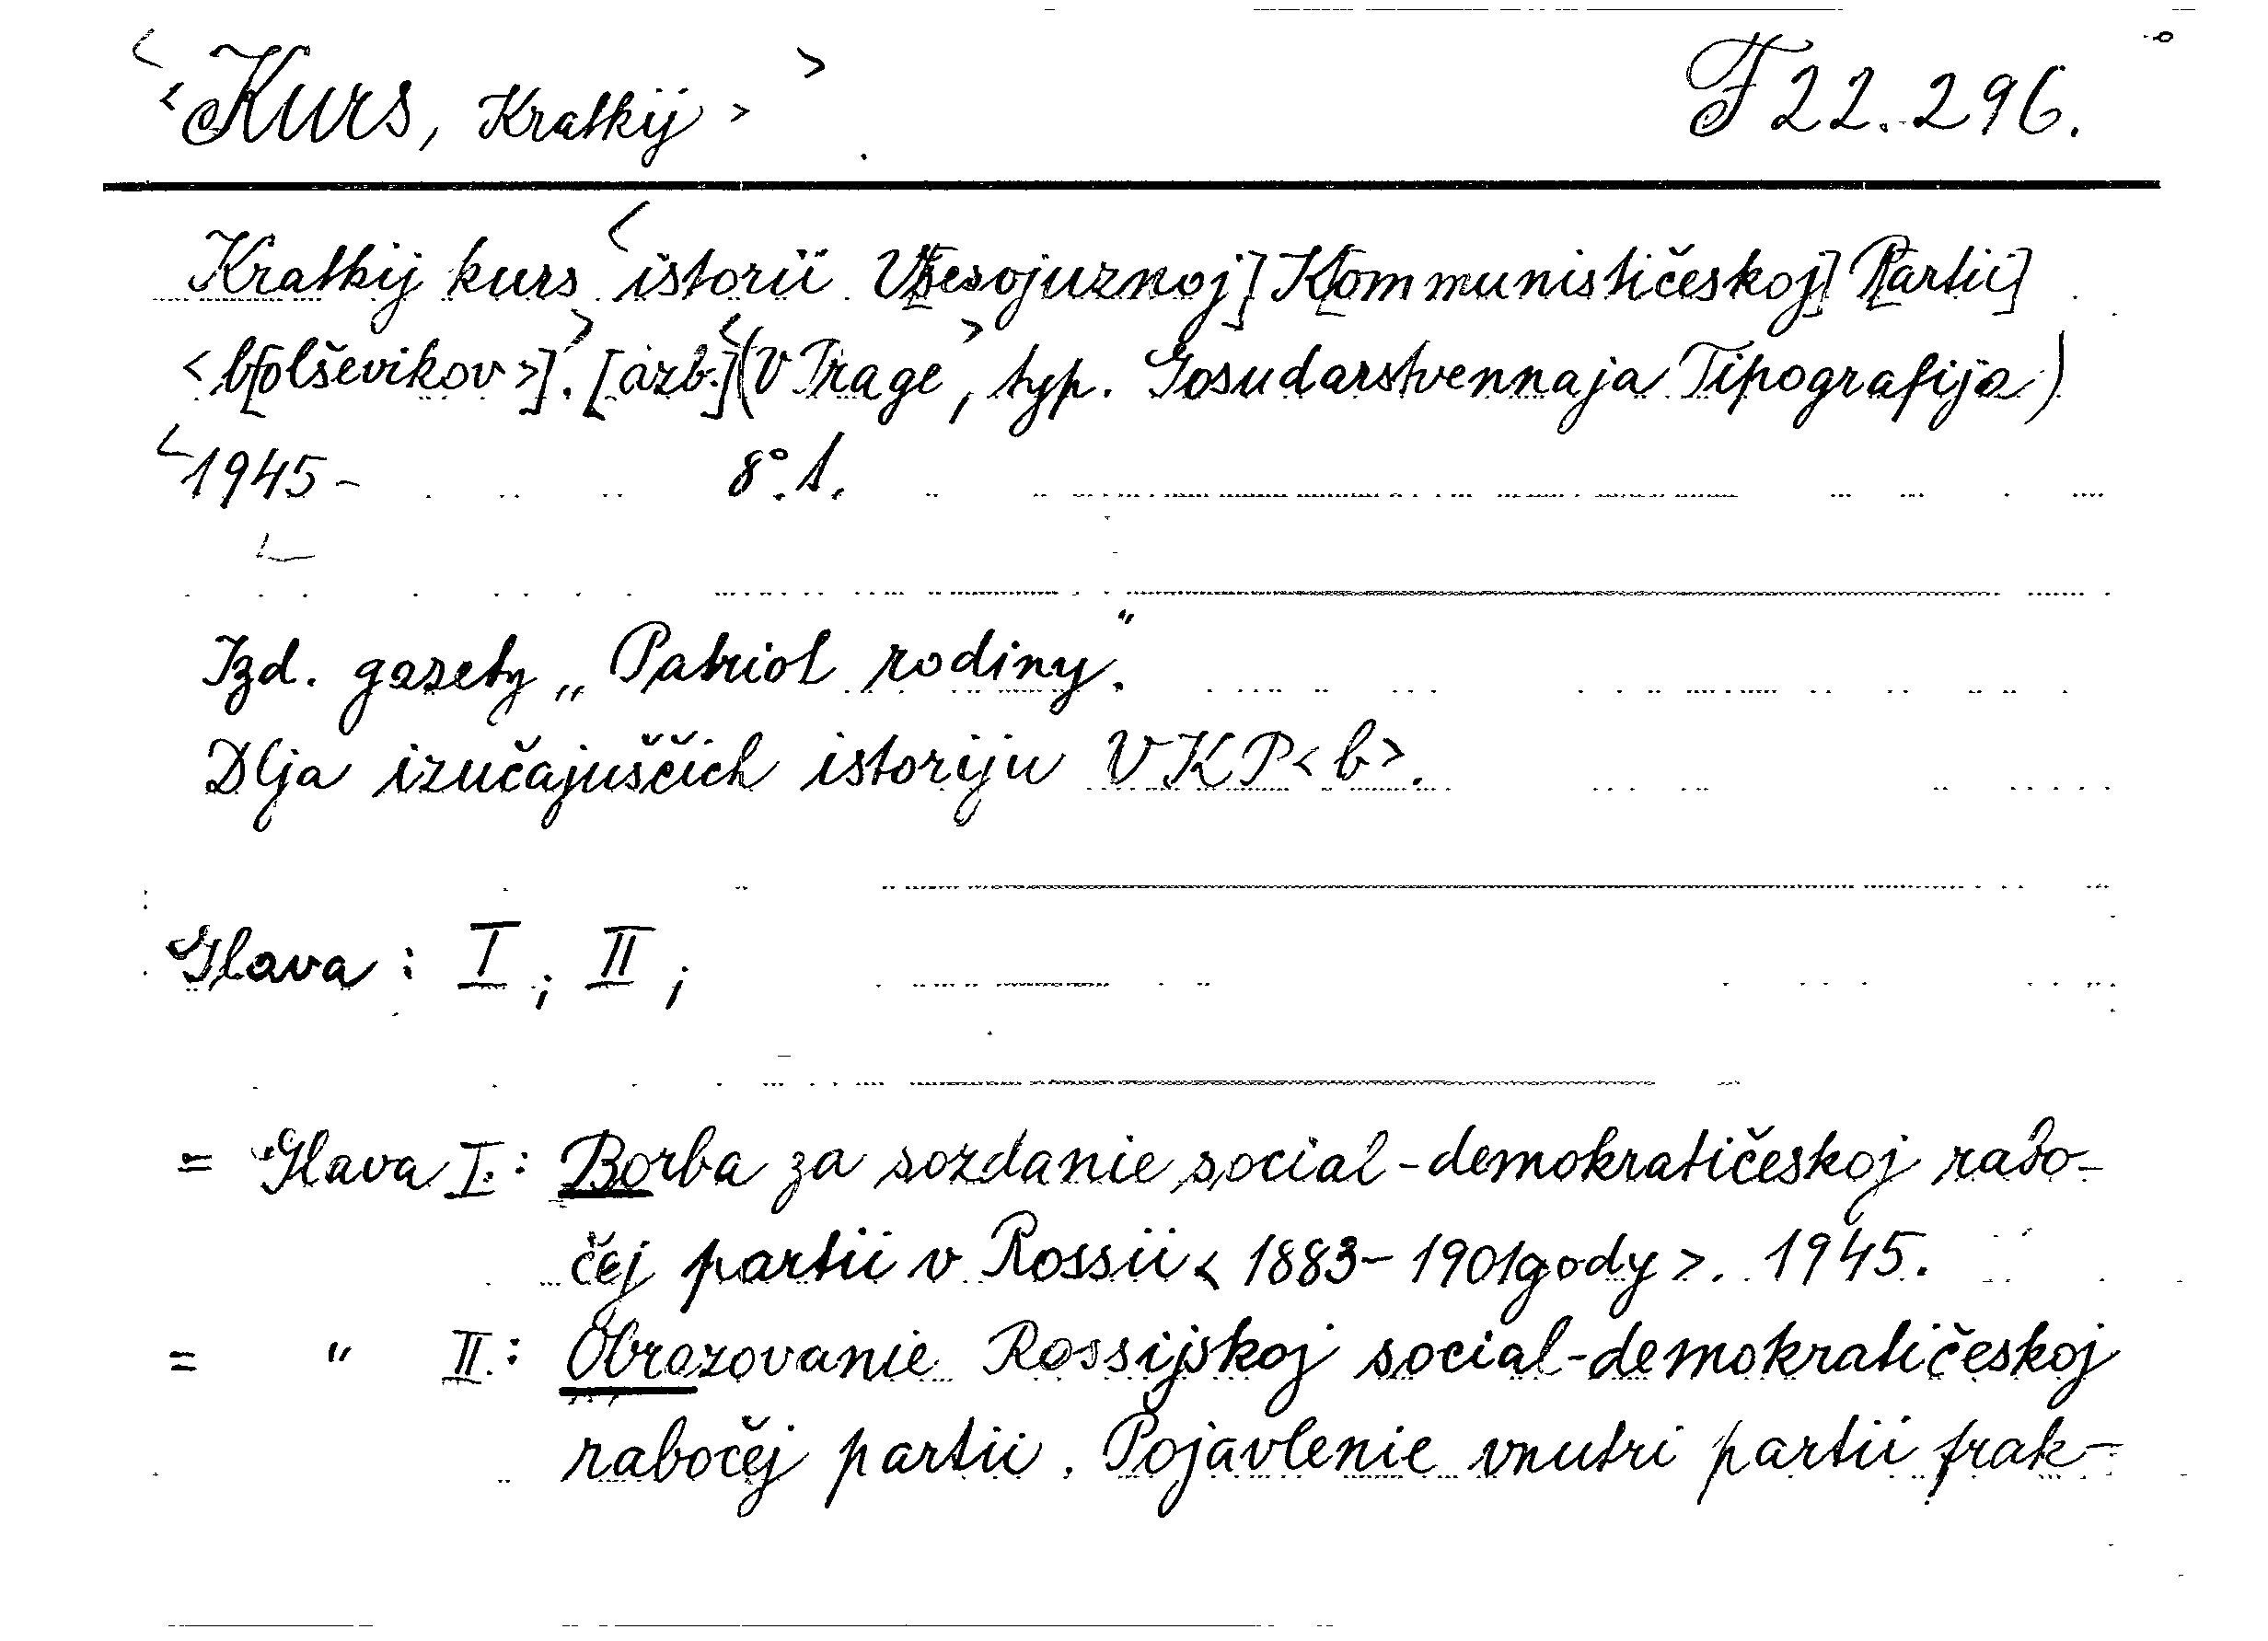 <Kurs, Kratkij> F 22.296.
Kratkij kurs istorii V[sesojuznoj] K[ommunističeskoj] P[artii]
<b[olševikov>]. [azb.] (V Prage, typ. Gosudarstvennaja Tipografija)
1945- 8°. 1.
Izd. gazety „Patriot rodiny".
Dlja izučajuščich istoriju VKP<b>.
Glava: I; II;
= Glava I.: Borba za sozdanie social-demokratičeskoj rabo-
čej partii v Rossii <1883-1901 gody>. 1945.
= " II.: Obrazovanie Rossijskoj social-demokratičeskoj
rabočej partii. Pojavlenie vnutri partii frak-